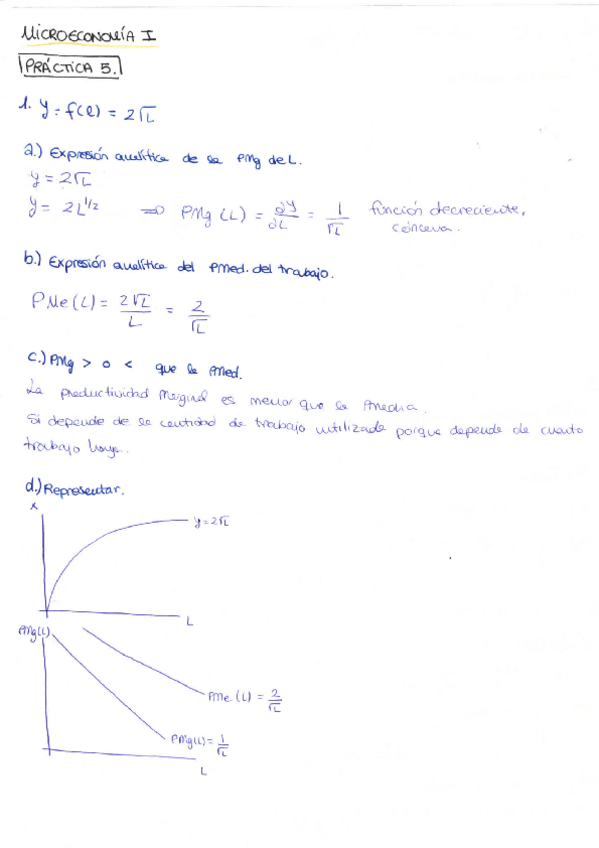 MICROECONOMÍA I
PRÁCTICA 5.
1. y = f(l) = 2√L
a.) Expresión analítica de la PMg de L.
y = 2√L
y = 2L^1/2 => PMg (L) = ∂y/∂L = 1/√L función decreciente, cóncava.
b.) Expresión analítica del PMed. del trabajo.
PMe(L) = 2√L/L = 2/√L
c.) PMg > o < que la PMed.
La productividad Marginal es menor que la Pmedia.
Si depende de la cantidad de trabajo utilizada porque depende de cuanto
trabajo haya.
d.) Representar.
x
y = 2√L
L
PMg(L)
PMe (L) = 2/√L
PMg(L) = 1/√L
L